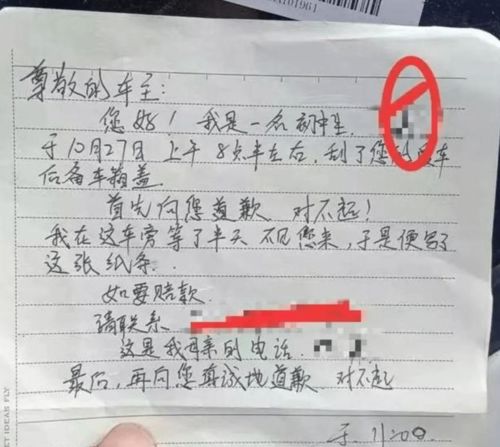 101961
尊敬的车主:
您好! 我是一名初中生,
于10月27日上午8点半左右,刮了您的 车
后备车箱盖
首先向您道歉 对不起!
我在这车旁等了半天 不见您来,于是便写了
这张纸条.
如要赔款
请联系
这是我母亲的电话.
最后,再向您真诚地道歉 对不起
于 11:20
ET IDEAS FLY